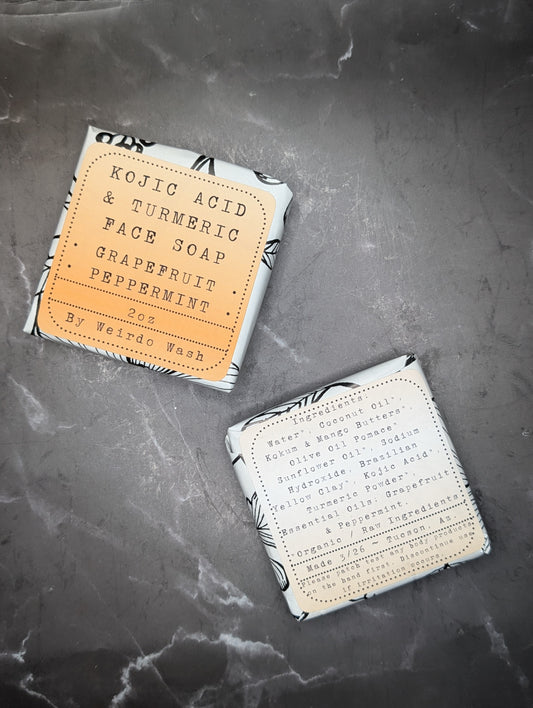 KOJIC ACID
& TURMERIC
FACE SOAP
GRAPEFRUIT
PEPPERMINT
2oz
By Weirdo Wash
Ingredients:
Water*, Coconut Oil*,
Kokum & Mango Butters*,
Olive Oil Pomace*,
Sunflower Oil*, Sodium
Hydroxide, Brazilian
Yellow Clay*, Kojic Acid*,
Turmeric Powder*,
Essential Oils: Grapefruit
& Peppermint.
*Organic / Raw Ingredients.
Made 3/26 ~ Tucson, Az.
Please patch test any body products
on the hand first. Discontinue use
if irritation occurs.